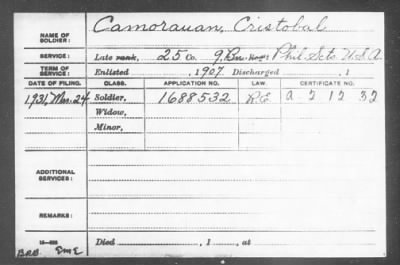 NAME OF SOLDIER: Camorauan, Cristobal
SERVICE: Late rank, 25 Co. 9 Bn. Regt. Phil. Scts. U.S.A.
TERM OF SERVICE: Enlisted , 1907, Discharged , 1
DATE OF FILING. CLASS. APPLICATION NO. LAW. CERTIFICATE NO.
1931, Mar. 24 Soldier, 1688532 R.E. A 2 12 32
Widow,
Minor,
ADDITIONAL SERVICES:
REMARKS:
Died , 1 , at
BRB EME